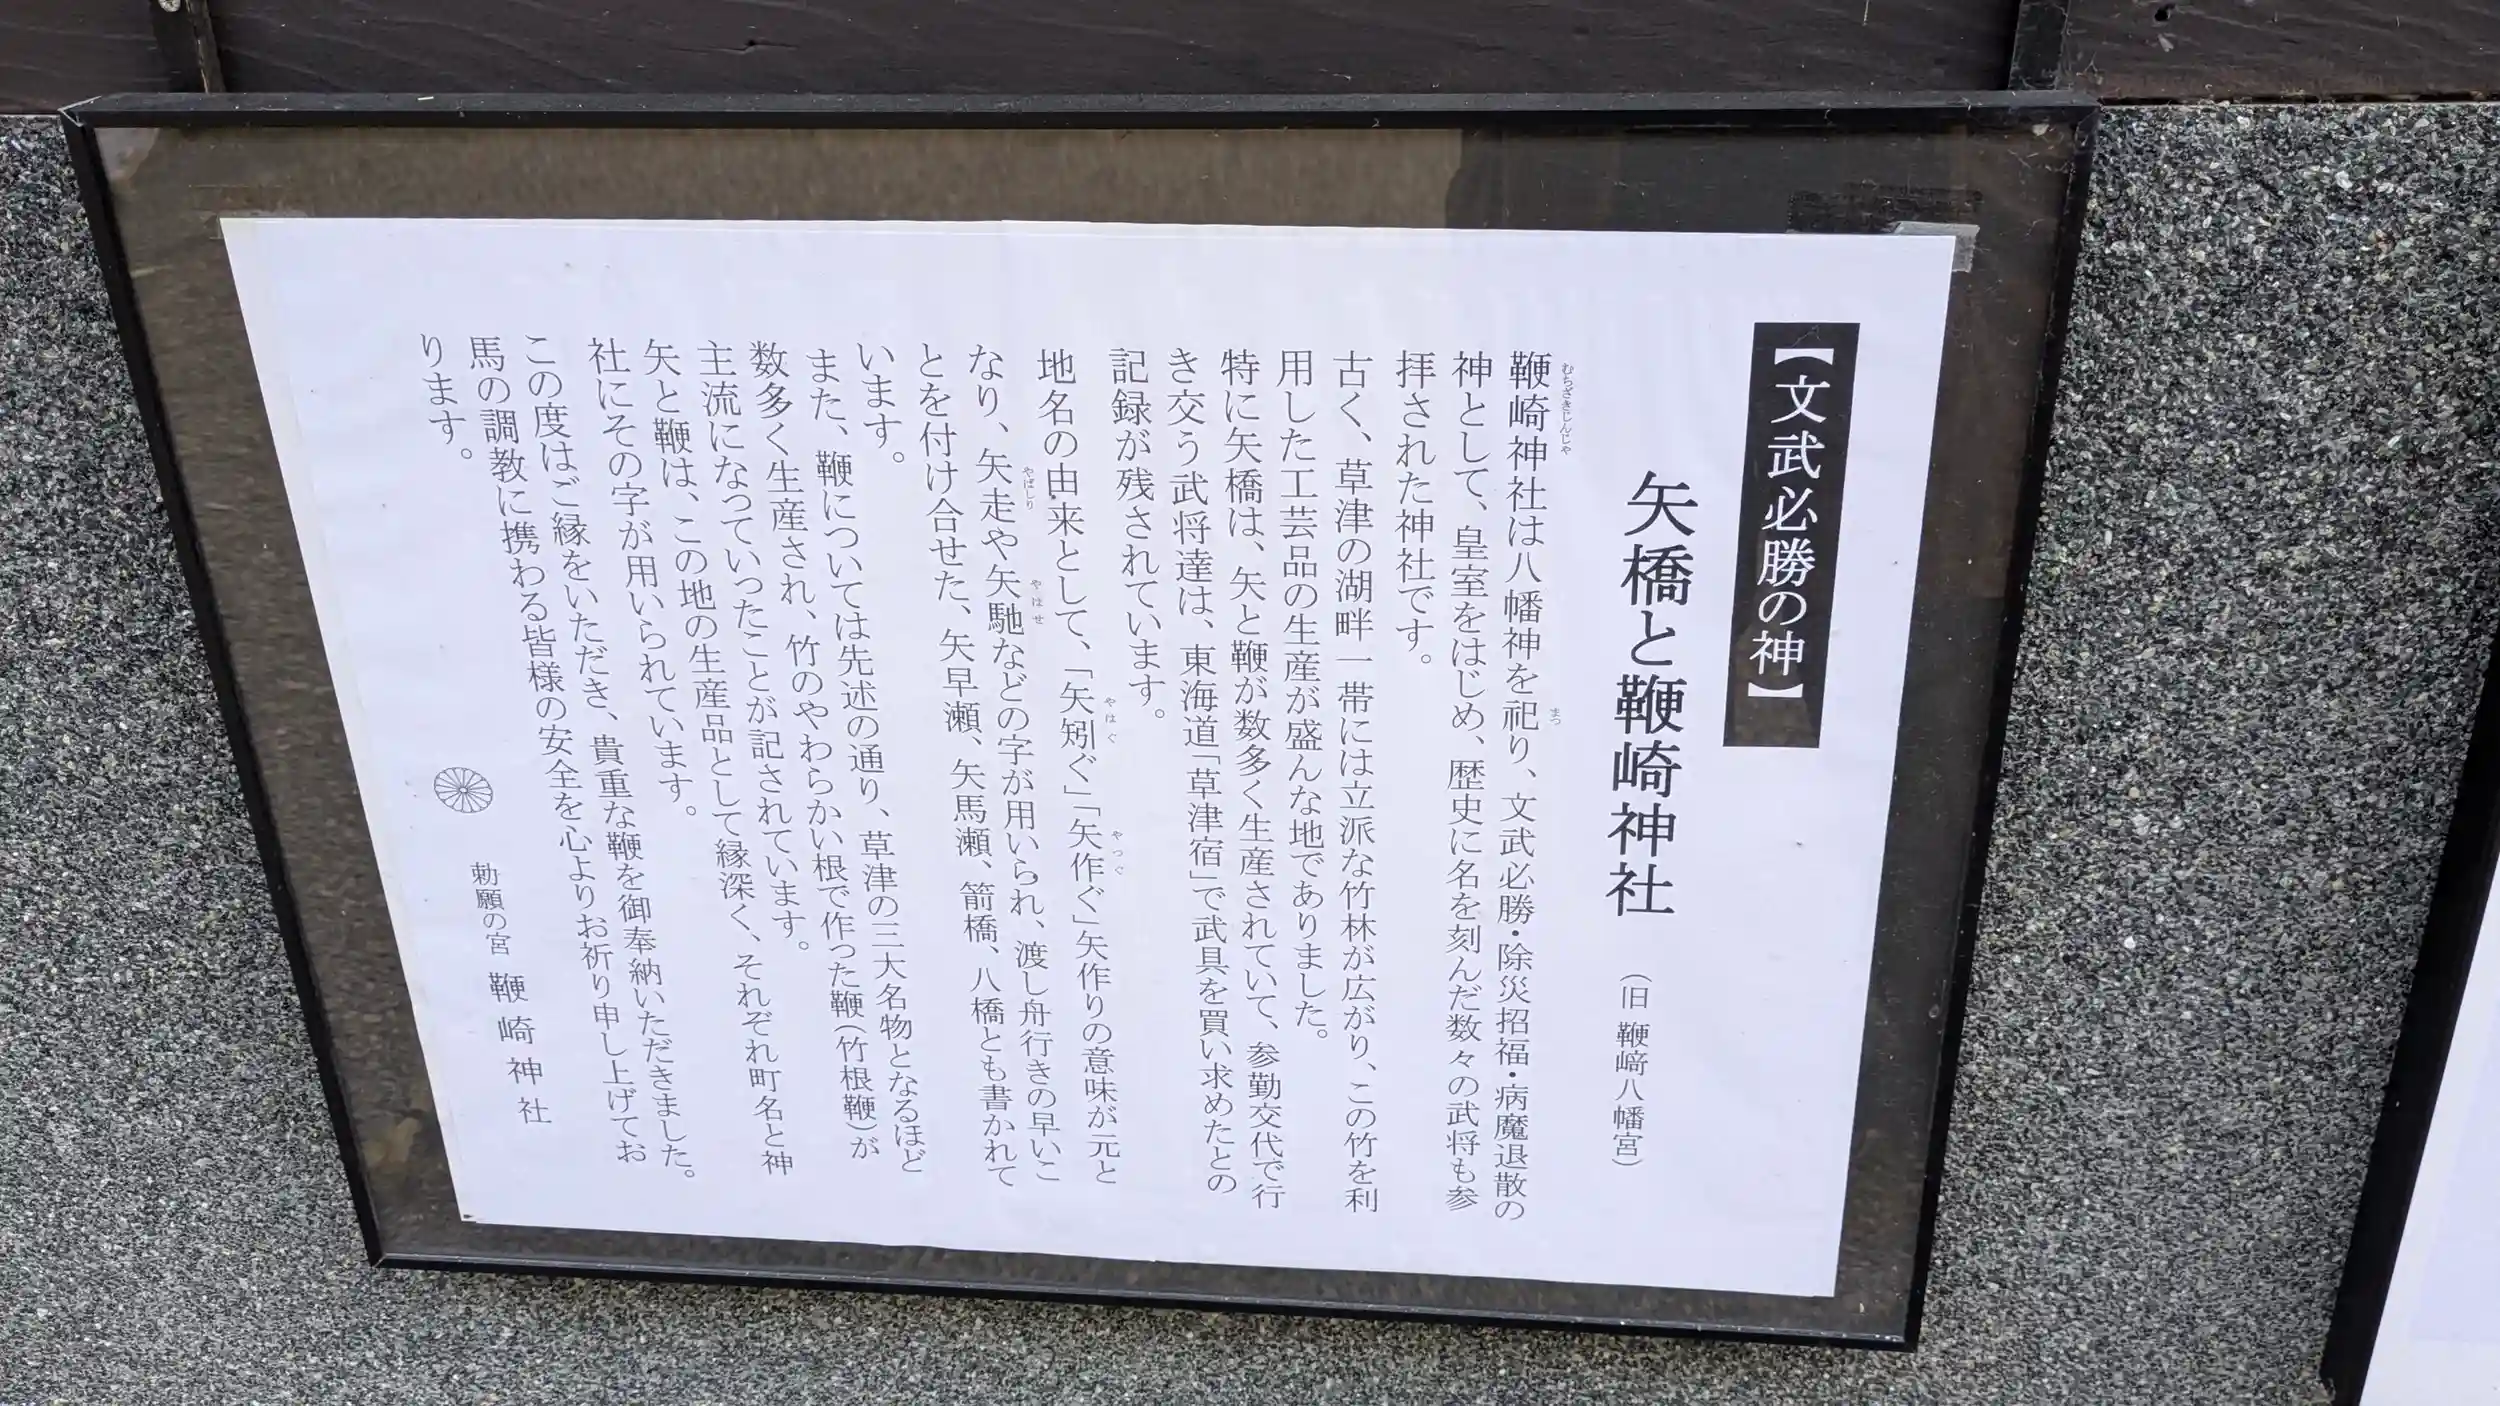 【文武必勝の神】
矢橋と鞭崎神社 （旧 鞭﨑八幡宮）
むちざきじんじゃ
まつ
鞭崎神社は八幡神を祀り、文武必勝・除災招福・病魔退散の
神として、皇室をはじめ、歴史に名を刻んだ数々の武将も参
拝された神社です。
古く、草津の湖畔一帯には立派な竹林が広がり、この竹を利
用した工芸品の生産が盛んな地でありました。
特に矢橋は、矢と鞭が数多く生産されていて、参勤交代で行
き交う武将達は、東海道「草津宿」で武具を買い求めたとの
記録が残されています。
やはぐ
やつぐ
地名の由来として、「矢矧ぐ」「矢作ぐ」矢作りの意味が元と
やばしり
やはせ
なり、矢走や矢馳などの字が用いられ、渡し舟行きの早いこ
とを付け合せた、矢早瀬、矢馬瀬、箭橋、八橋とも書かれて
います。
また、鞭については先述の通り、草津の三大名物となるほど
数多く生産され、竹のやわらかい根で作った鞭（竹根鞭）が
主流になっていったことが記されています。
矢と鞭は、この地の生産品として縁深く、それぞれ町名と神
社にその字が用いられています。
この度はご縁をいただき、貴重な鞭を御奉納いただきました。
馬の調教に携わる皆様の安全を心よりお祈り申し上げてお
ります。
勅願の宮 鞭崎神社